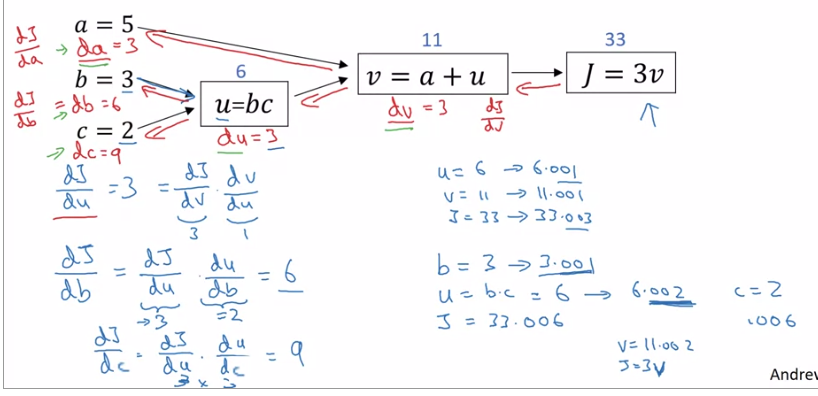 a = 5
dJ/da → da = 3
b = 3
dJ/db = db = 6
→
c = 2
→ dc = 9
6
u=bc
du = 3
11
v = a + u
dv = 3 dJ/dv
33
J = 3v
dJ/du = 3 = dJ/dv · dv/du
3 1
dJ/db = dJ/du · du/db = 6
→3 =2
dJ/dc = dJ/du · du/dc = 9
3 × 3
u = 6 → 6.001
v = 11 → 11.001
J = 33 → 33.003
b = 3 → 3.001
u = b·c = 6 → 6.002 c = 2
J = 33.006 .006
v = 11.002
J = 3v
Andrew